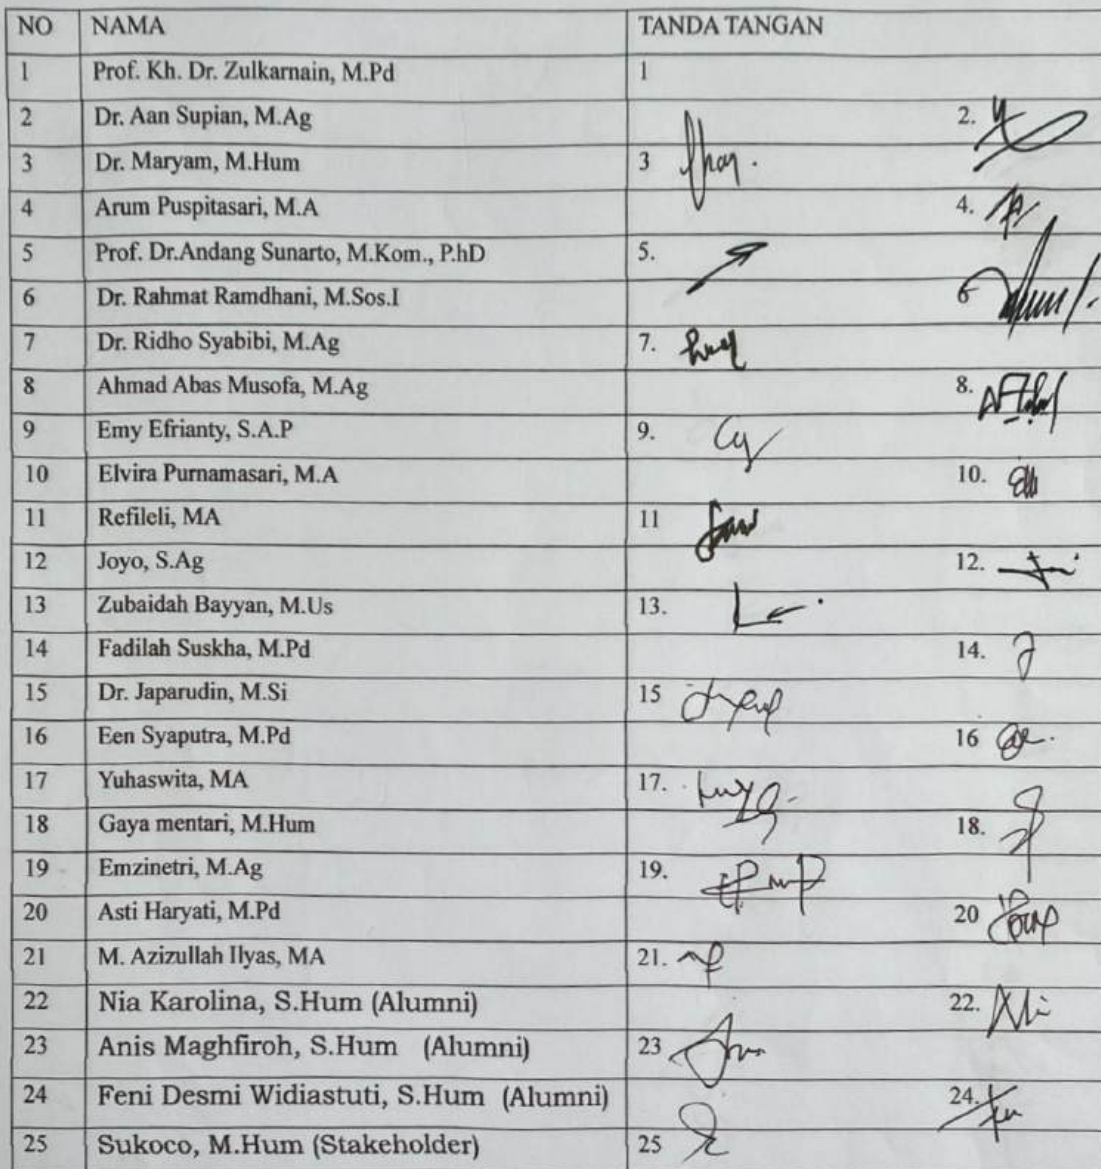 NO NAMA TANDA TANGAN
1 Prof. Kh. Dr. Zulkarnain, M.Pd 1
2 Dr. Aan Supian, M.Ag 2.
3 Dr. Maryam, M.Hum 3
4 Arum Puspitasari, M.A 4.
5 Prof. Dr.Andang Sunarto, M.Kom., P.hD 5.
6 Dr. Rahmat Ramdhani, M.Sos.I 6
7 Dr. Ridho Syabibi, M.Ag 7.
8 Ahmad Abas Musofa, M.Ag 8.
9 Emy Efrianty, S.A.P 9.
10 Elvira Purnamasari, M.A 10.
11 Refileli, MA 11
12 Joyo, S.Ag 12.
13 Zubaidah Bayyan, M.Us 13.
14 Fadilah Suskha, M.Pd 14.
15 Dr. Japarudin, M.Si 15
16 Een Syaputra, M.Pd 16
17 Yuhaswita, MA 17.
18 Gaya mentari, M.Hum 18.
19 Emzinetri, M.Ag 19.
20 Asti Haryati, M.Pd 20
21 M. Azizullah Ilyas, MA 21.
22 Nia Karolina, S.Hum (Alumni) 22.
23 Anis Maghfiroh, S.Hum (Alumni) 23
24 Feni Desmi Widiastuti, S.Hum (Alumni) 24.
25 Sukoco, M.Hum (Stakeholder) 25